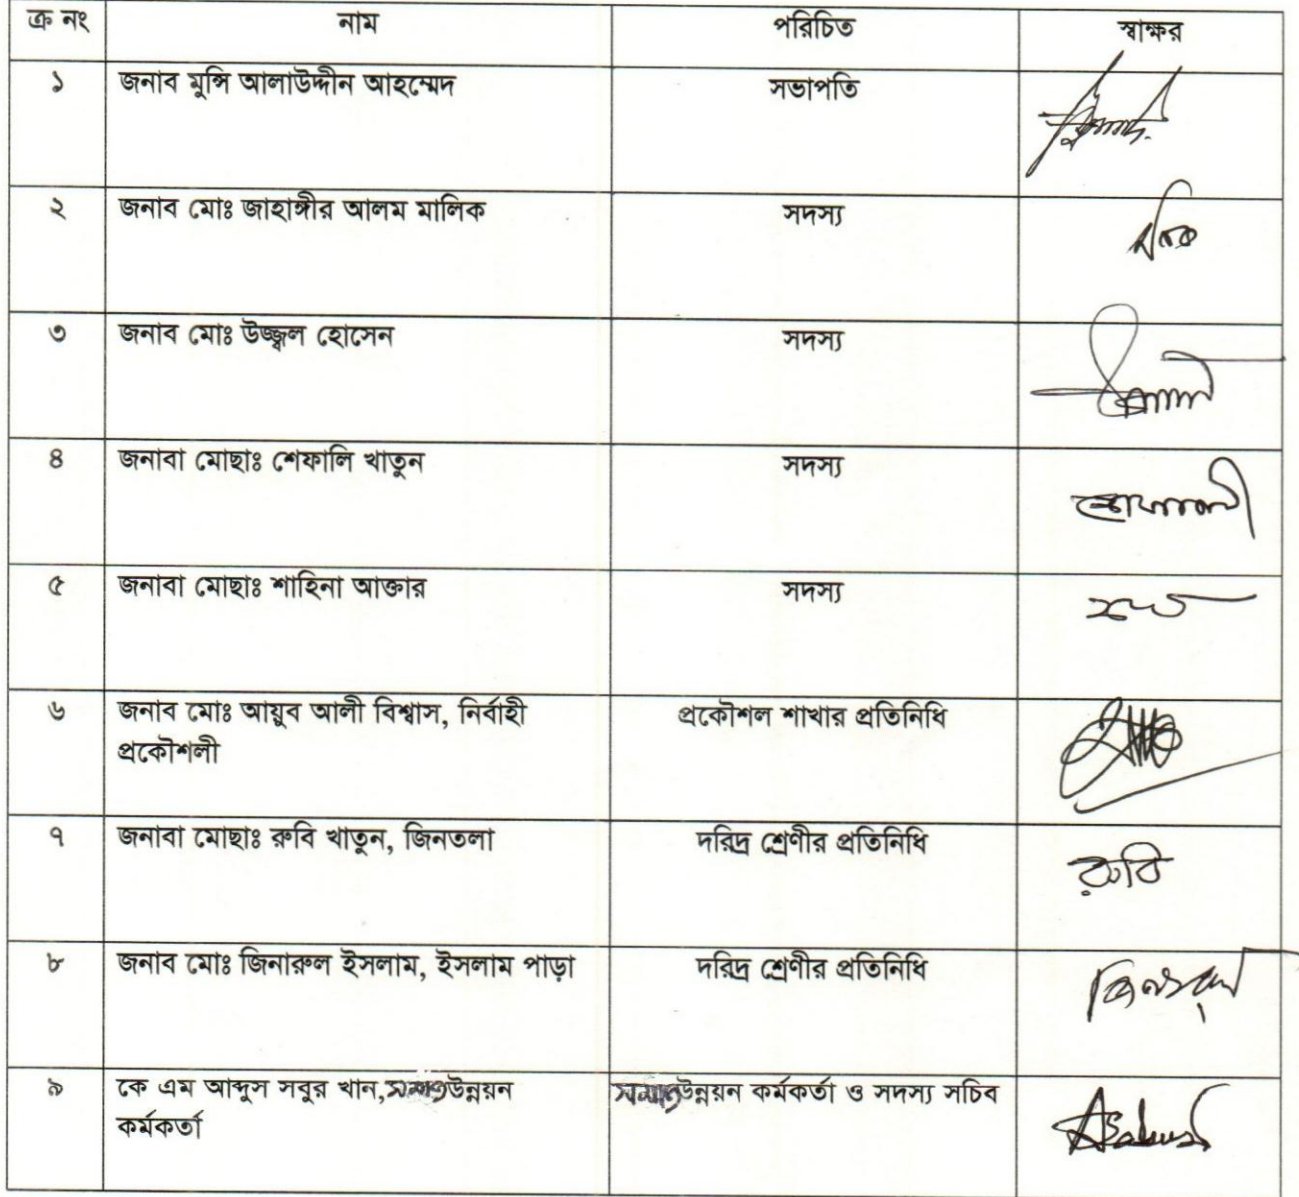 ক্র নং নাম পরিচিত স্বাক্ষর
১ জনাব মুন্সি আলাউদ্দীন আহম্মেদ সভাপতি
২ জনাব মোঃ জাহাঙ্গীর আলম মালিক সদস্য
৩ জনাব মোঃ উজ্জ্বল হোসেন সদস্য
৪ জনাবা মোছাঃ শেফালি খাতুন সদস্য
শেফালী
৫ জনাবা মোছাঃ শাহিনা আক্তার সদস্য
৬ জনাব মোঃ আয়ুব আলী বিশ্বাস, নির্বাহী প্রকৌশল শাখার প্রতিনিধি
প্রকৌশলী
৭ জনাবা মোছাঃ রুবি খাতুন, জিনতলা দরিদ্র শ্রেণীর প্রতিনিধি
রুবি
৮ জনাব মোঃ জিনারুল ইসলাম, ইসলাম পাড়া দরিদ্র শ্রেণীর প্রতিনিধি
জিনারুল
৯ কে এম আব্দুস সবুর খান, সমাজ উন্নয়ন সমাজ উন্নয়ন কর্মকর্তা ও সদস্য সচিব
কর্মকর্তা